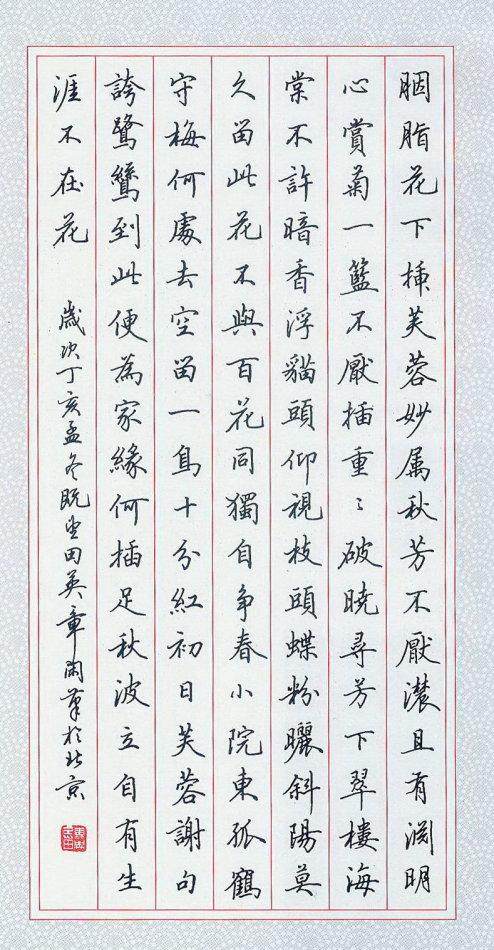 胭脂花下插芙蓉妙属秋芳不厭濃且有淵明
心賞菊一籃不厭插重〻破曉尋芳下翠樓海
棠不許暗香浮貓頭仰視枝頭蝶粉曬斜陽莫
久留此花不與百花同獨自争春小院東孤鶴
守梅何處去空留一鳥十分紅初日芙蓉謝句
誇鷺鷥到此便為家緣何插足秋波立自有生
涯不在花
歲次丁亥孟冬既望田英章閑筆於北京